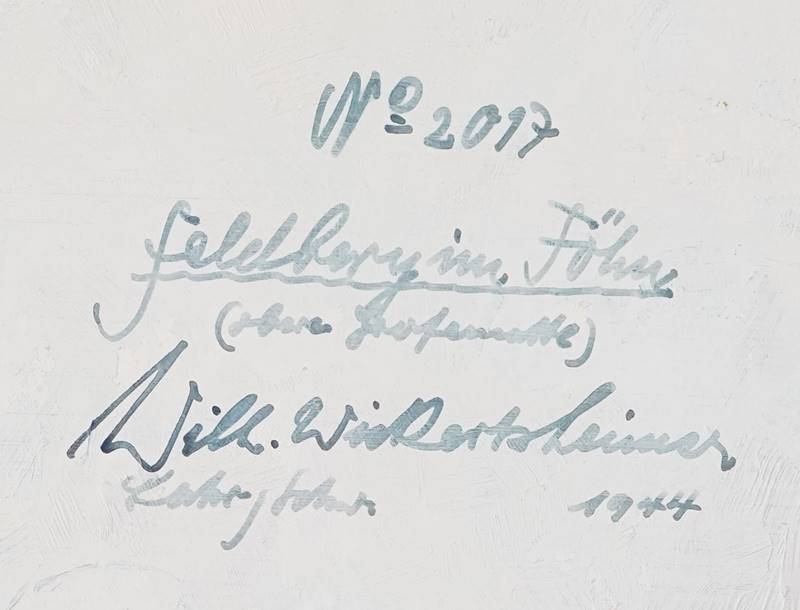 Nº 2017
Feldberg im Föhn
(obere
Wilh. Wickertsheimer
Lahr 1944